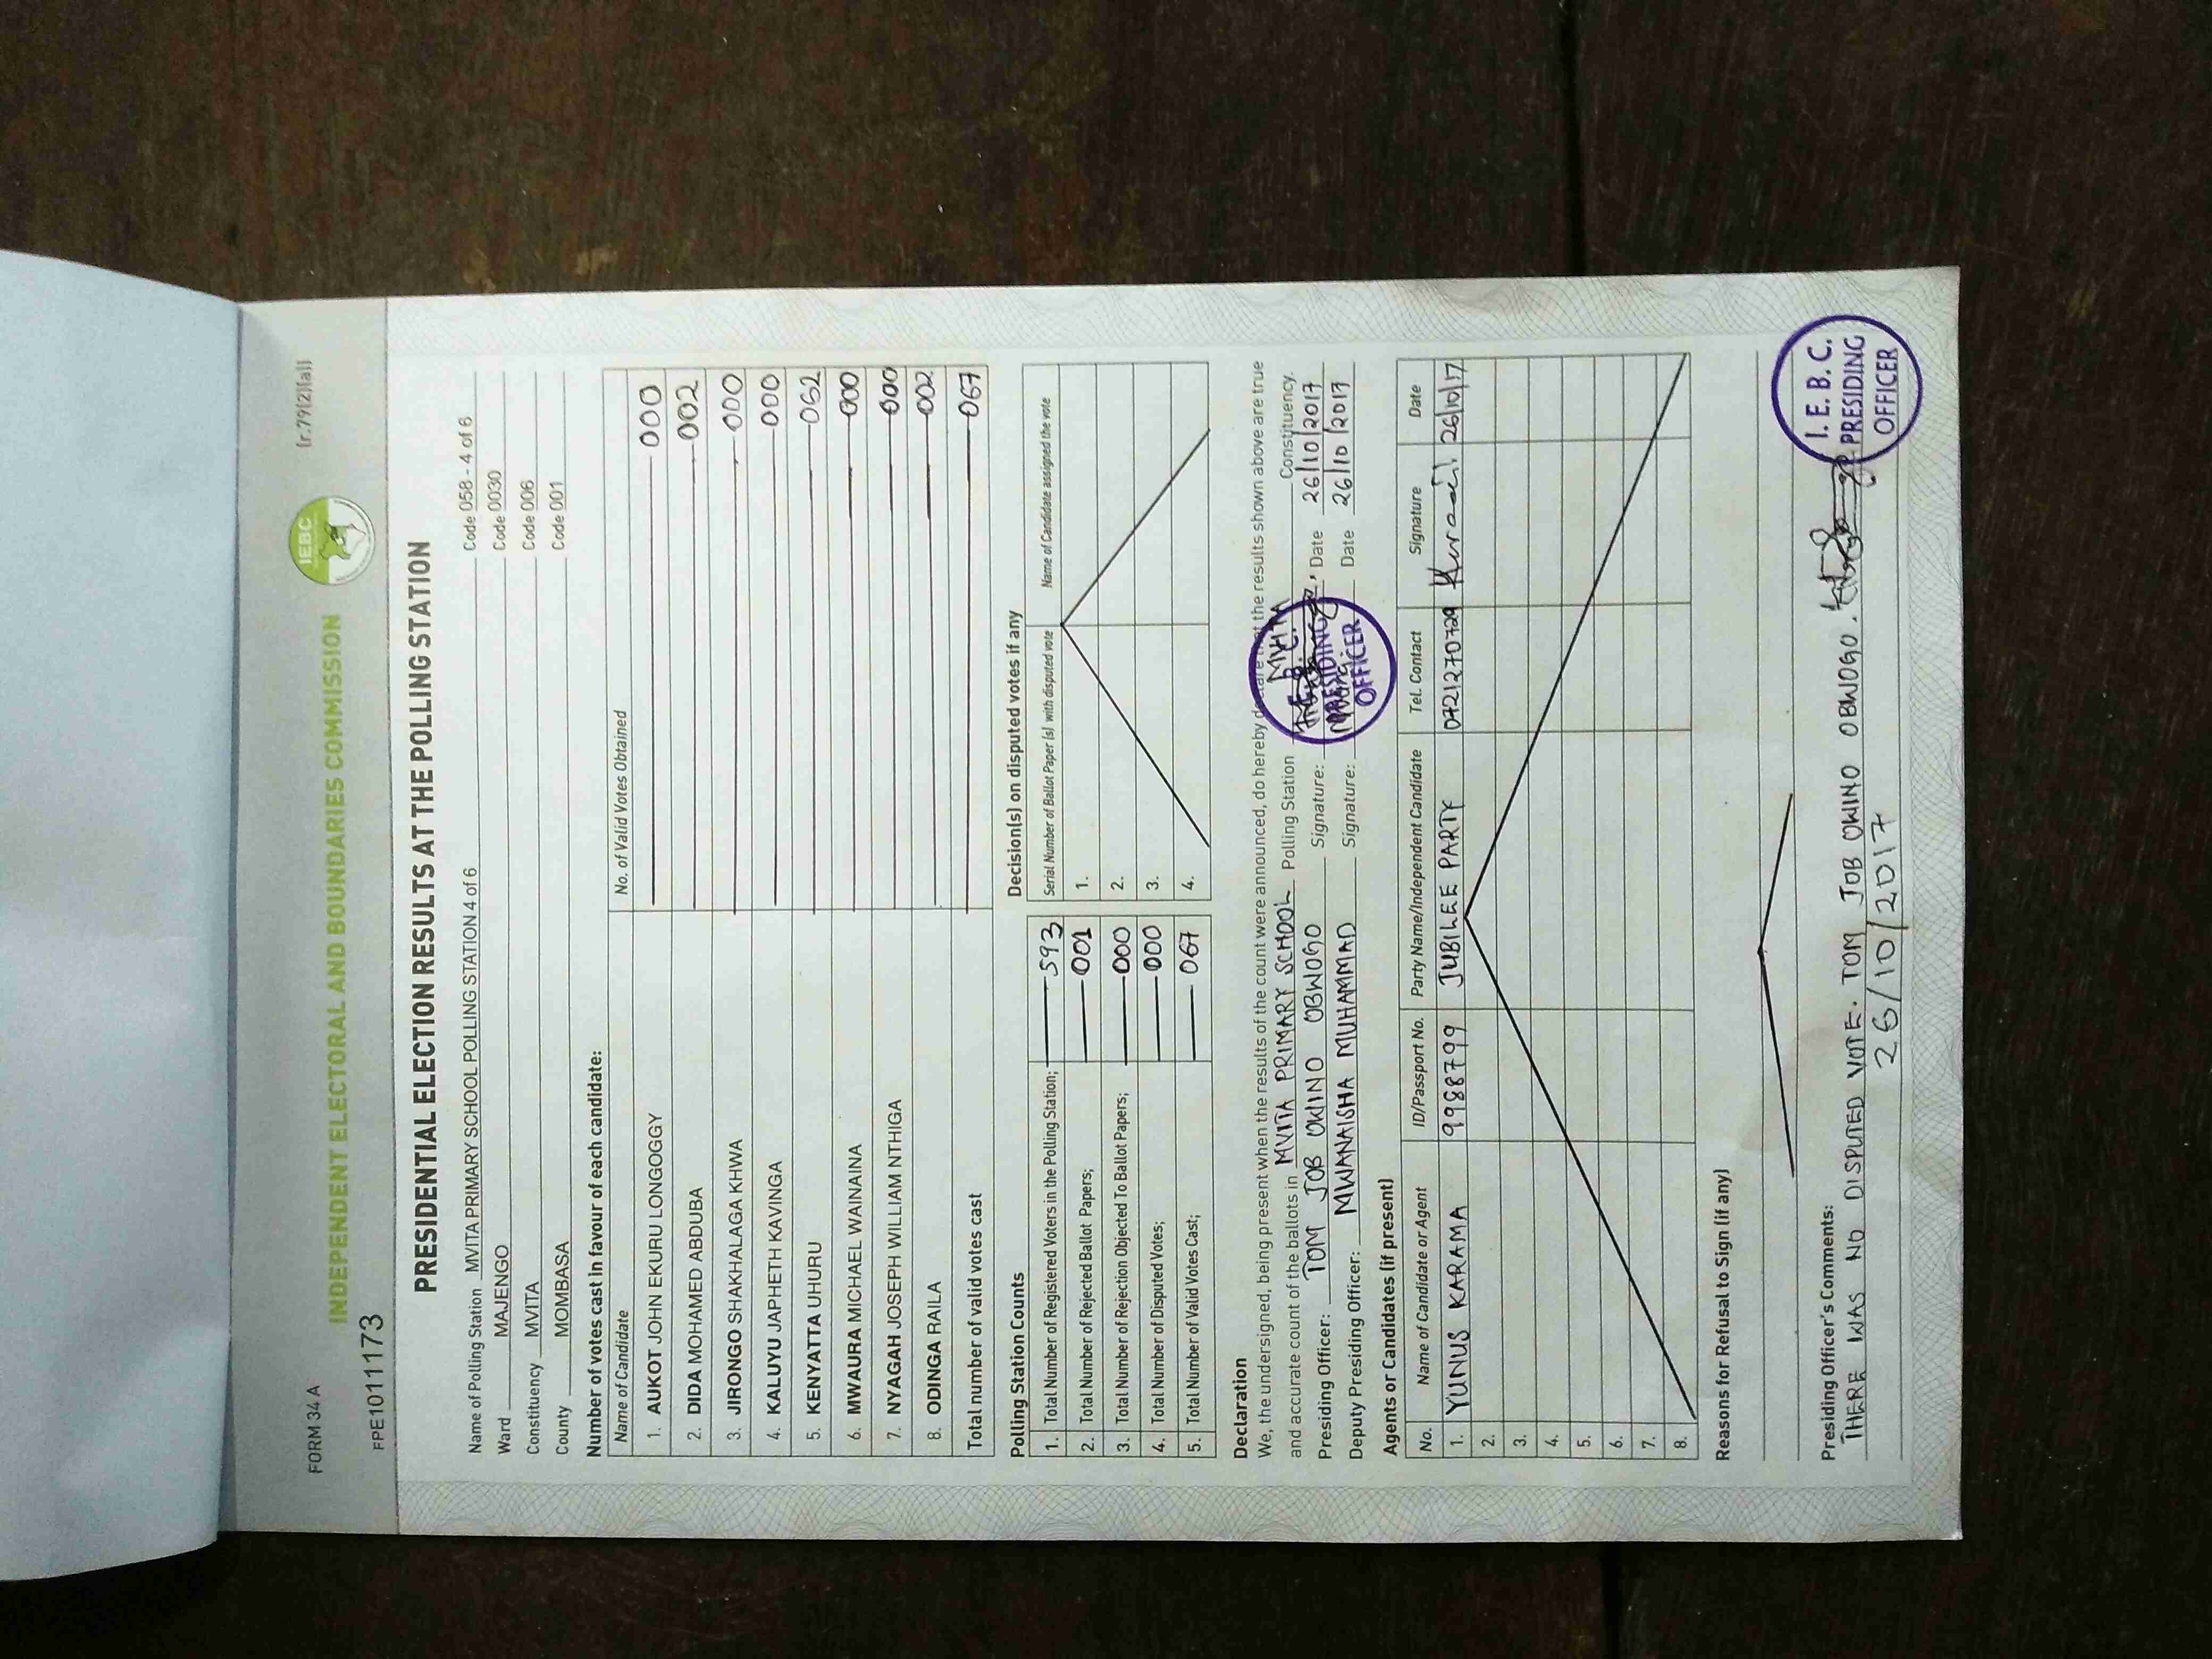 FORM 34 A
INDEPENDENT ELECTORAL AND BOUNDARIES COMMISSION
IEBC
(r.79(2)(a))
FPE1011173
PRESIDENTIAL ELECTION RESULTS AT THE POLLING STATION
Name of Polling Station MVITA PRIMARY SCHOOL POLLING STATION 4 of 6 Code 058 - 4 of 6
Ward MAJENGO Code 0030
Constituency MVITA Code 006
County MOMBASA Code 001
Number of votes cast in favour of each candidate:
Name of Candidate No. of Valid Votes Obtained
1. AUKOT JOHN EKURU LONGOGGY 000
2. DIDA MOHAMED ABDUBA 002
3. JIRONGO SHAKHALAGA KHWA 000
4. KALUYU JAPHETH KAVINGA 000
5. KENYATTA UHURU 062
6. MWAURA MICHAEL WAINAINA 000
7. NYAGAH JOSEPH WILLIAM NTHIGA 000
8. ODINGA RAILA 002
Total number of valid votes cast 067
Polling Station Counts
1. Total Number of Registered Voters in the Polling Station; 593
2. Total Number of Rejected Ballot Papers; 001
3. Total Number of Rejection Objected To Ballot Papers; 000
4. Total Number of Disputed Votes; 000
5. Total Number of Valid Votes Cast; 067
Decision(s) on disputed votes if any
Serial Number of Ballot Paper (s) with disputed vote Name of Candidate assigned the vote
1.
2.
3.
4.
Declaration
We, the undersigned, being present when the results of the count were announced, do hereby declare that the results shown above are true
and accurate count of the ballots in MVITA PRIMARY SCHOOL Polling Station MVITA Constituency.
Presiding Officer: TOM JOB OWINO OBWOGO Signature: Date 26/10/2017
Deputy Presiding Officer: MWANAISHA MUHAMMAD Signature: Date 26/10/2017
I. E. B. C.
PRESIDING
OFFICER
Agents or Candidates (if present)
No. Name of Candidate or Agent ID/Passport No. Party Name/Independent Candidate Tel. Contact Signature Date
1. YUNUS KARAMA 9988799 JUBILEE PARTY 0721270729 26/10/17
2.
3.
4.
5.
6.
7.
8.
Reasons for Refusal to Sign (if any)
Presiding Officer's Comments:
THERE WAS NO DISPUTED VOTE. TOM JOB OWINO OBWOGO.
26/10/2017
I. E. B. C.
PRESIDING
OFFICER